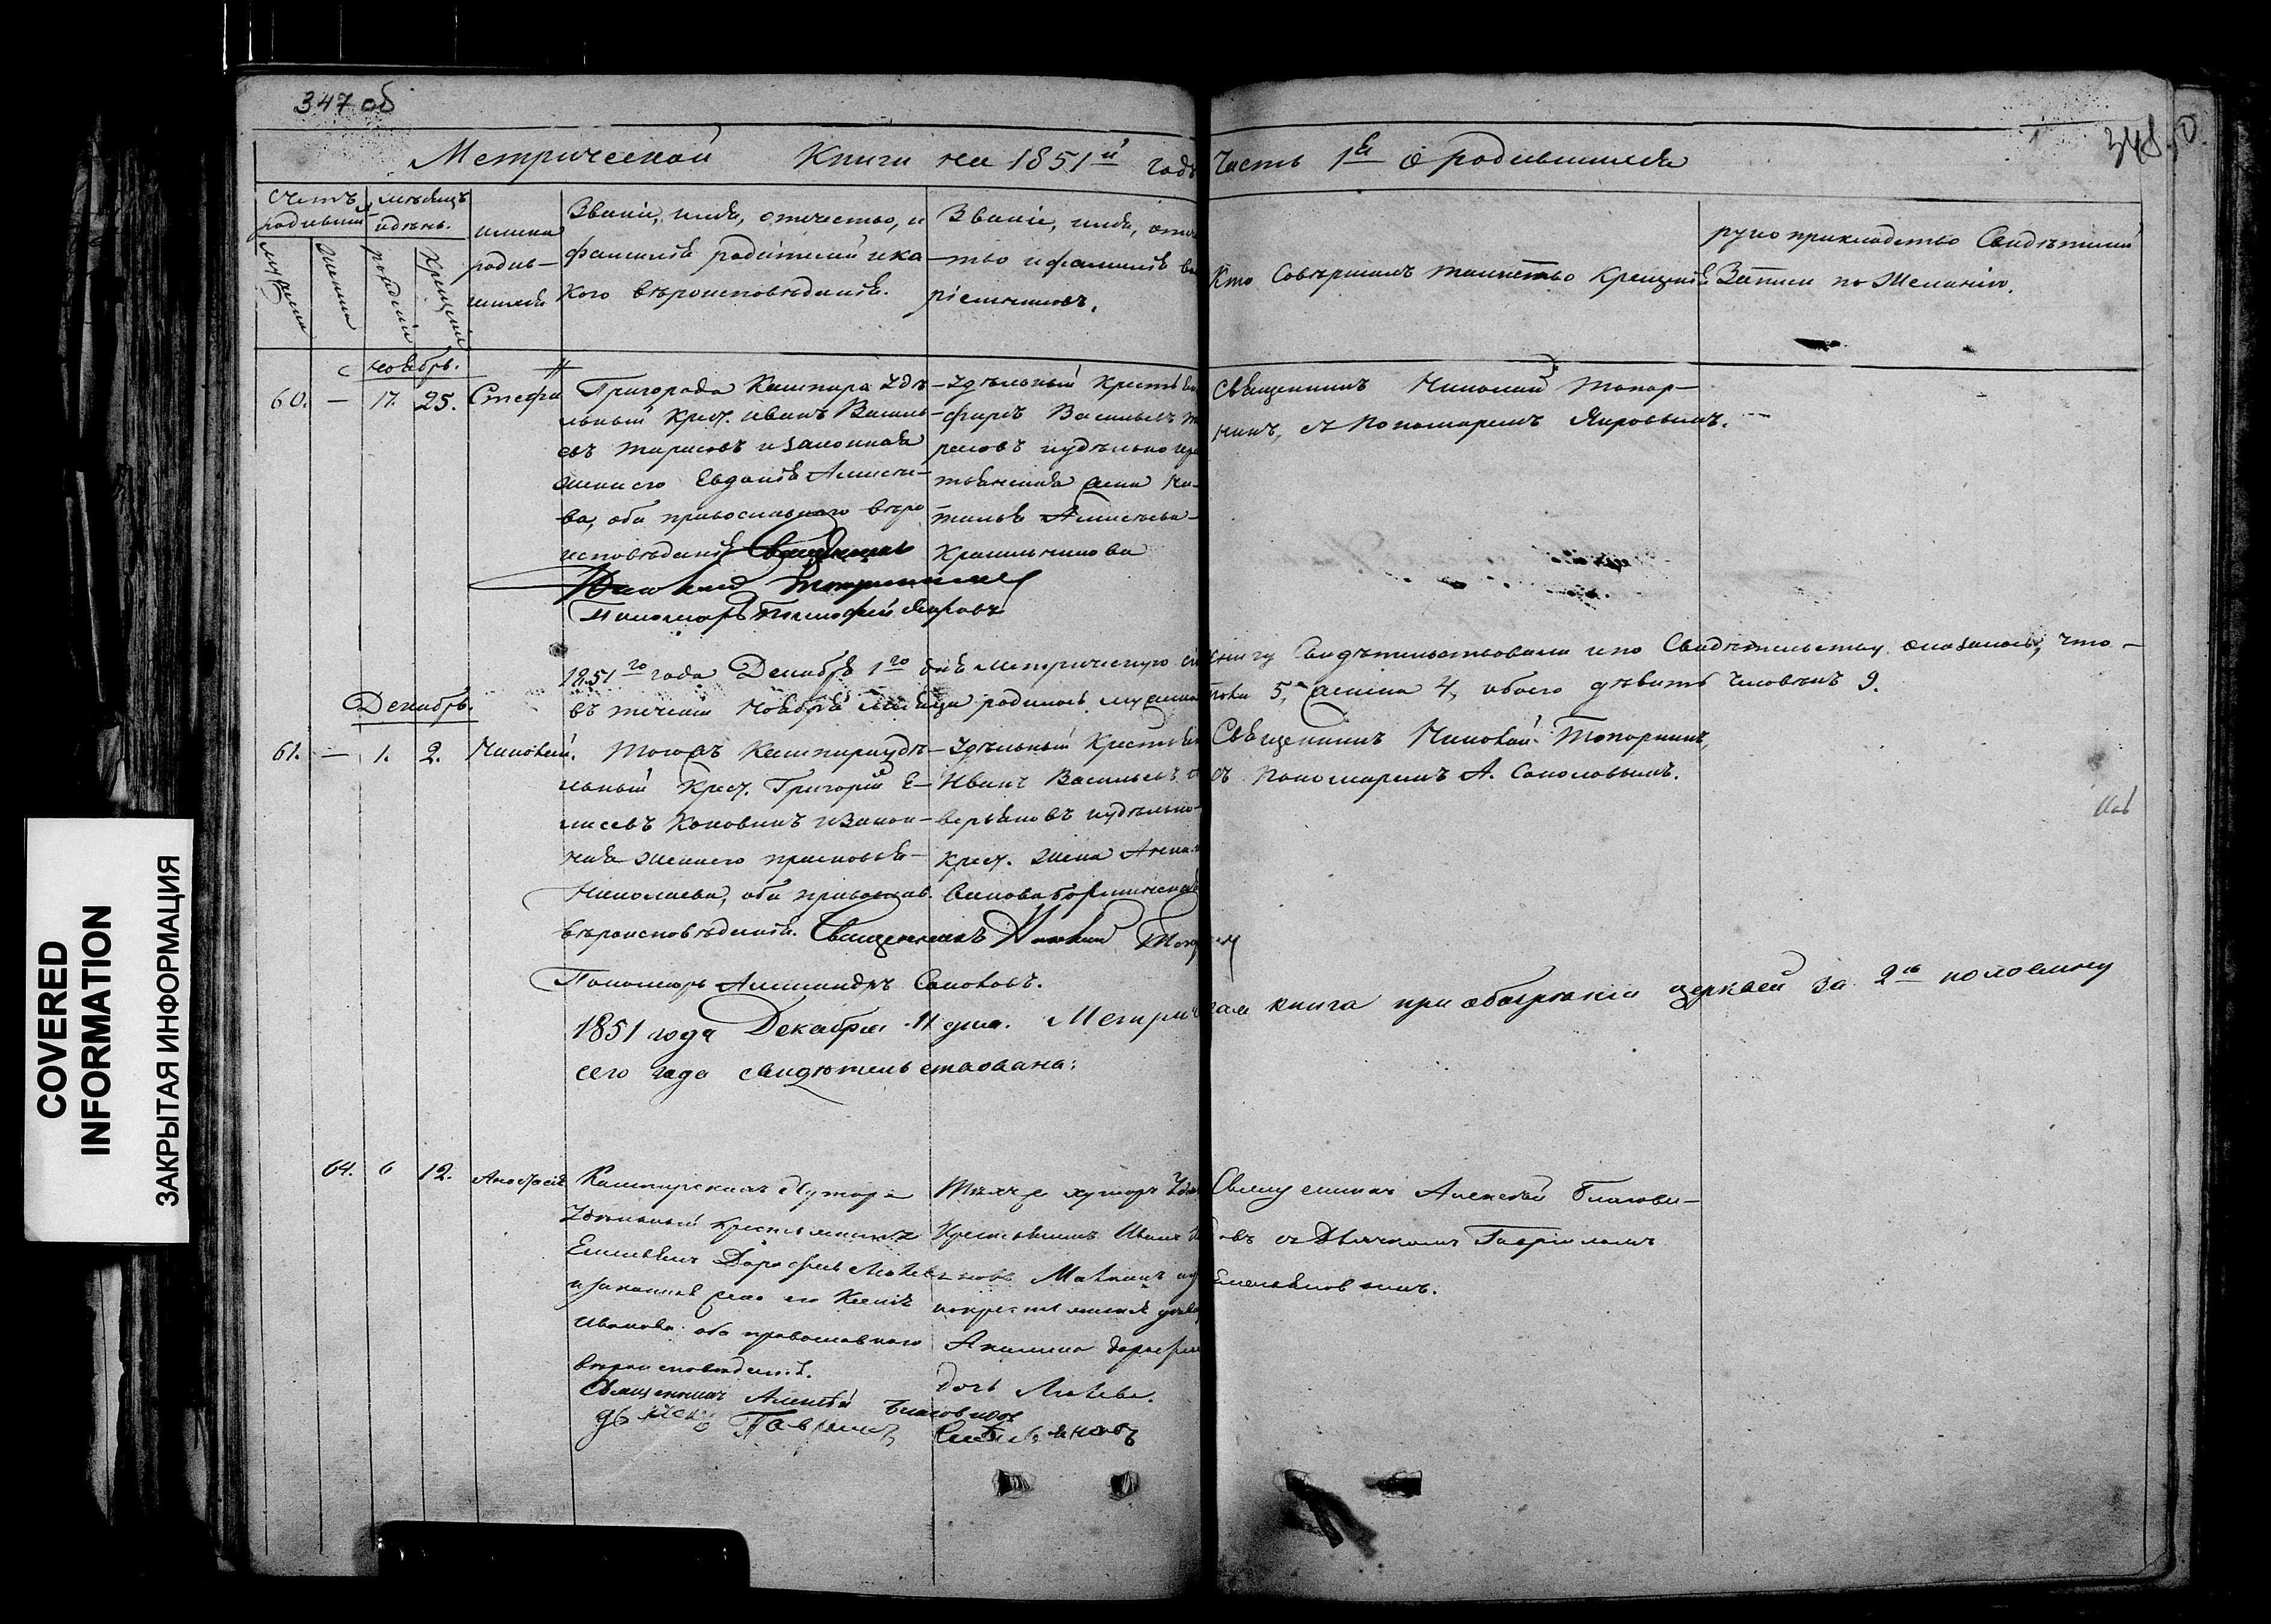 347 об
348
Метрической Книги на 1851й годъ Часть 1я о родившихся
Счетъ родивших
мѣсяцъ и день.
мужска
женска
рожденія
крещенія
имена родив-шихся
Званіе, имя, отчество, и
фамилія родителей и ка
кого вѣроисповѣданія.
Званіе, имя, отче
-тво и фамилія во
ріемниковъ.
Кто Совершилъ таинство Крещенія
рукоприкладство Свидѣтелей
Записи по Желанію.
Ноябрь.
60. — 17. 25. Стефа
Пригорода Кашпира Удѣ
льный Крест. Иванъ Василь
евъ Тарасовъ и законная
жена его Евдокія Алексѣе-
ва, оба православнаго вѣро
исповѣданія Священникъ
Удѣльный Крестьян
Васильевъ
расовъ и удѣльно кре
тьянская жена На-
талья Алексѣева
Красильникова
Священникъ Николай Топор-
нинъ, съ Пономаремъ Яировымъ.
Пономарь Тимофей Яировъ
1851го года Декабря 1го дня метрическую книгу Свидѣтельствовали и по Свидѣтельству оказалось, что -
въ теченіи Ноября месяца родилось мужеска пола 5, женска 4, обоего девять человѣкъ 9.
Декабрь.
61. — 1. 2. Николай.
Тогожъ Кашпира удѣ-
льный Крест. Григорій Е-
лисеевъ Коновнинъ и Закон-
ная жена его
Николаева, оба православ.
вѣроисповѣданія. Священникъ Николай
Пономарь Александръ Соколовъ.
Удѣльный Крестьян
Иванъ Васильевъ
верьяновъ и удѣльно-
крест. жена Анна
Священникъ Николай Топорнинъ,
съ Пономаремъ А. Соколовымъ.
1851 года Декабря 11 дня. Метрическая книга при обозрѣніи церквей за 2ю половину
сего года свидѣтельствована:
64. 6 12. Анастасія
Кашпирскихъ Хуторъ
Удѣльный крестьянинъ
Емельянъ Дорофеевъ
и законная жена его Ксенія
Иванова оба православнаго
вѣроисповѣданія.
Священникъ Алексѣй Благовидовъ
Дьячекъ Гаврилъ Емельяновъ
Тѣхъ же хуторъ Удѣ
Крестьянинъ Иванъ
Акилина Дорофее
дочь
Священникъ Алексѣй Благови-
довъ съ Дьячкомъ Гавриломъ
Емельяновымъ.
COVERED
INFORMATION
ЗАКРЫТАЯ ИНФОРМАЦИЯ